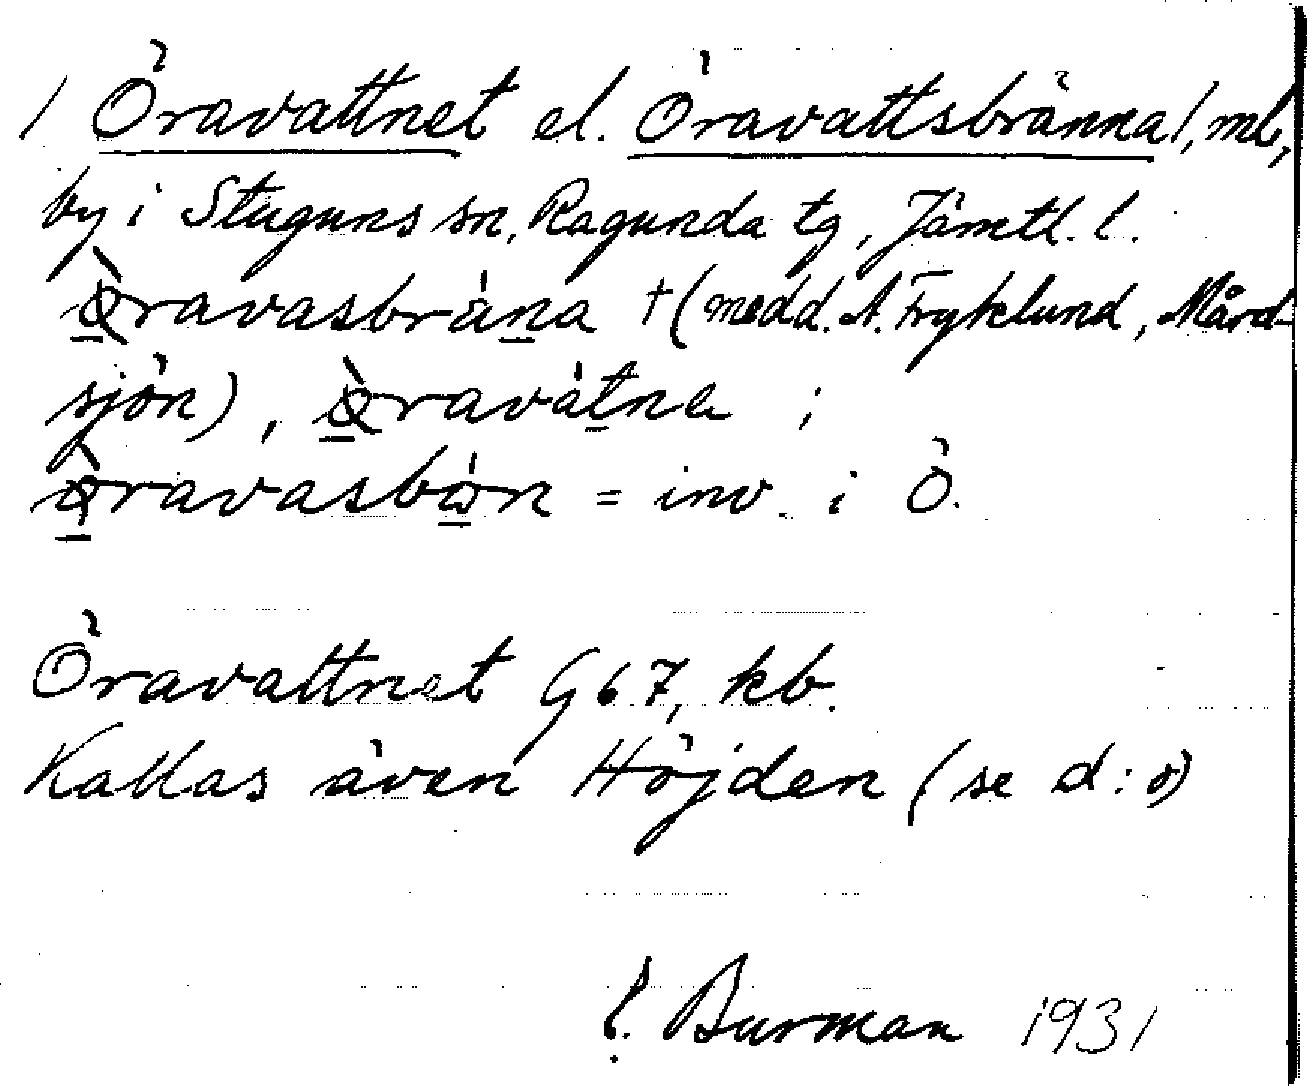 1 Öravattnet el. Öravattsbränna 1, ml,
by i Stuguns sn, Ragunda tg, Jämtl. l.
Òravasbrána † (medd. A. Fryklund, Mård-
sjön), Òravátne ;
Òravasbón = inv. i Ö.
Öravattnet G 67, kb.
Kallas även Höjden (se d:o)
Burman 1931